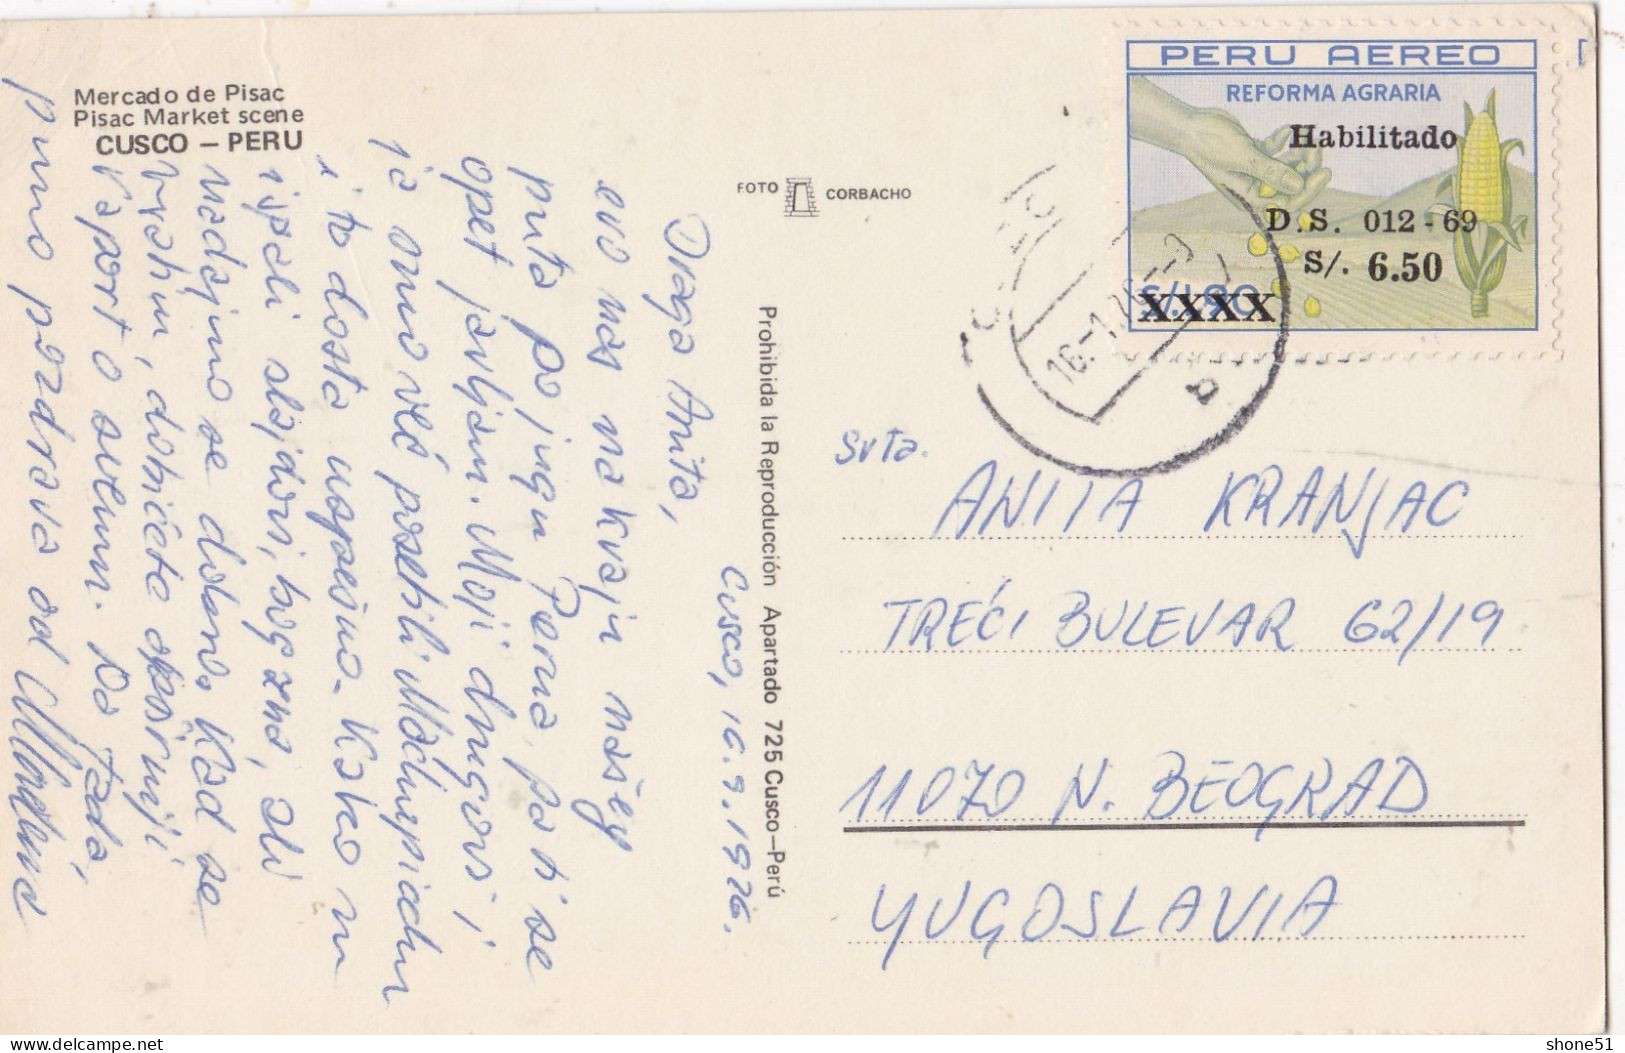 Mercado de Pisac
Pisac Market scene
CUSCO – PERU
FOTO CORBACHO
Prohibida la Reproducción Apartado 725 Cusco–Perú
PERU AEREO
REFORMA AGRARIA
Habilitado
D.S. 012 - 69
S/. 6.50
XXXX
Cusco, 16.9.1976.
Draga Anita,
evo nas na kraju našeg
puta po jugu Perua, pa ti se
opet javljam. Moji drugovi i
ja smo već posetili Mačupikču
i to dosta uspešno. Kako su
ispali slajdovi, bog zna, ali
nadajmo se dobro. Kad se
vratim, dobićete opširniji
raport o svemu. Do tada,
puno pozdrava od
Srta.
ANITA KRANJAC
TREĆI BULEVAR 62/19
11070 N. BEOGRAD
YUGOSLAVIA
delcampe.net
shone51